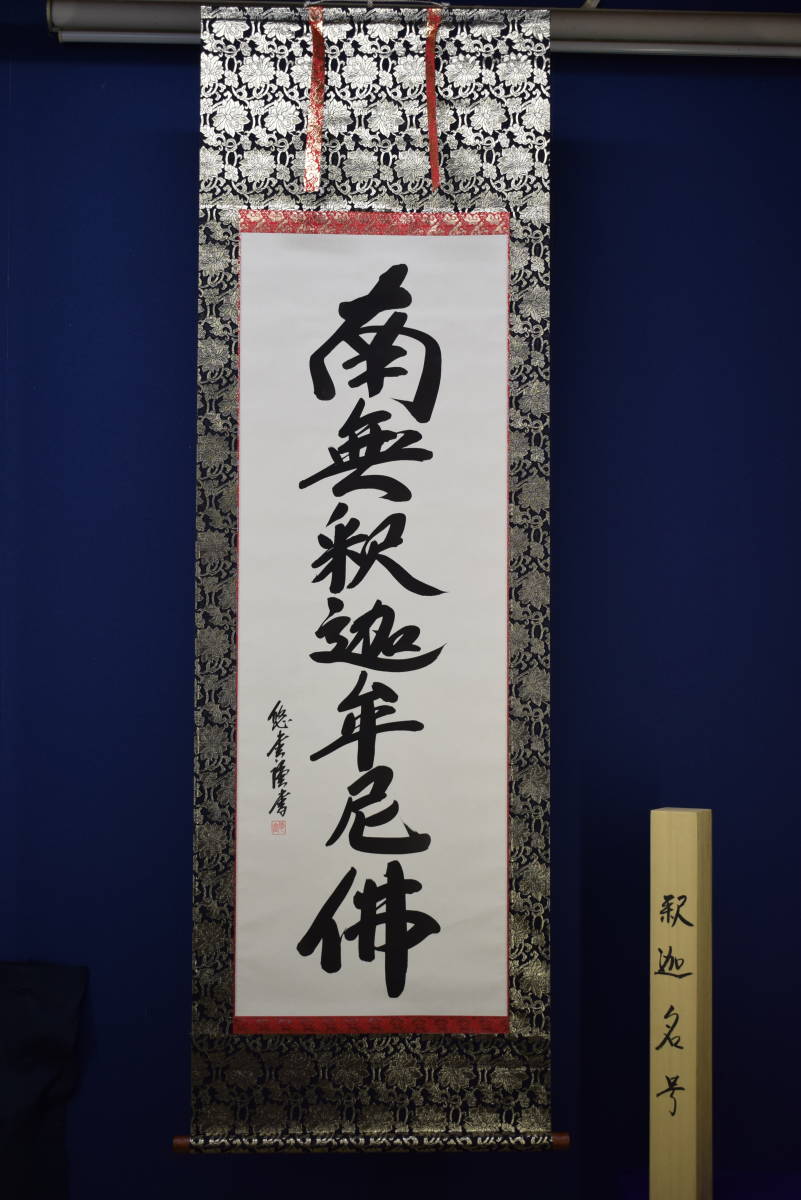 南無釈迦牟尼佛
釈迦名号